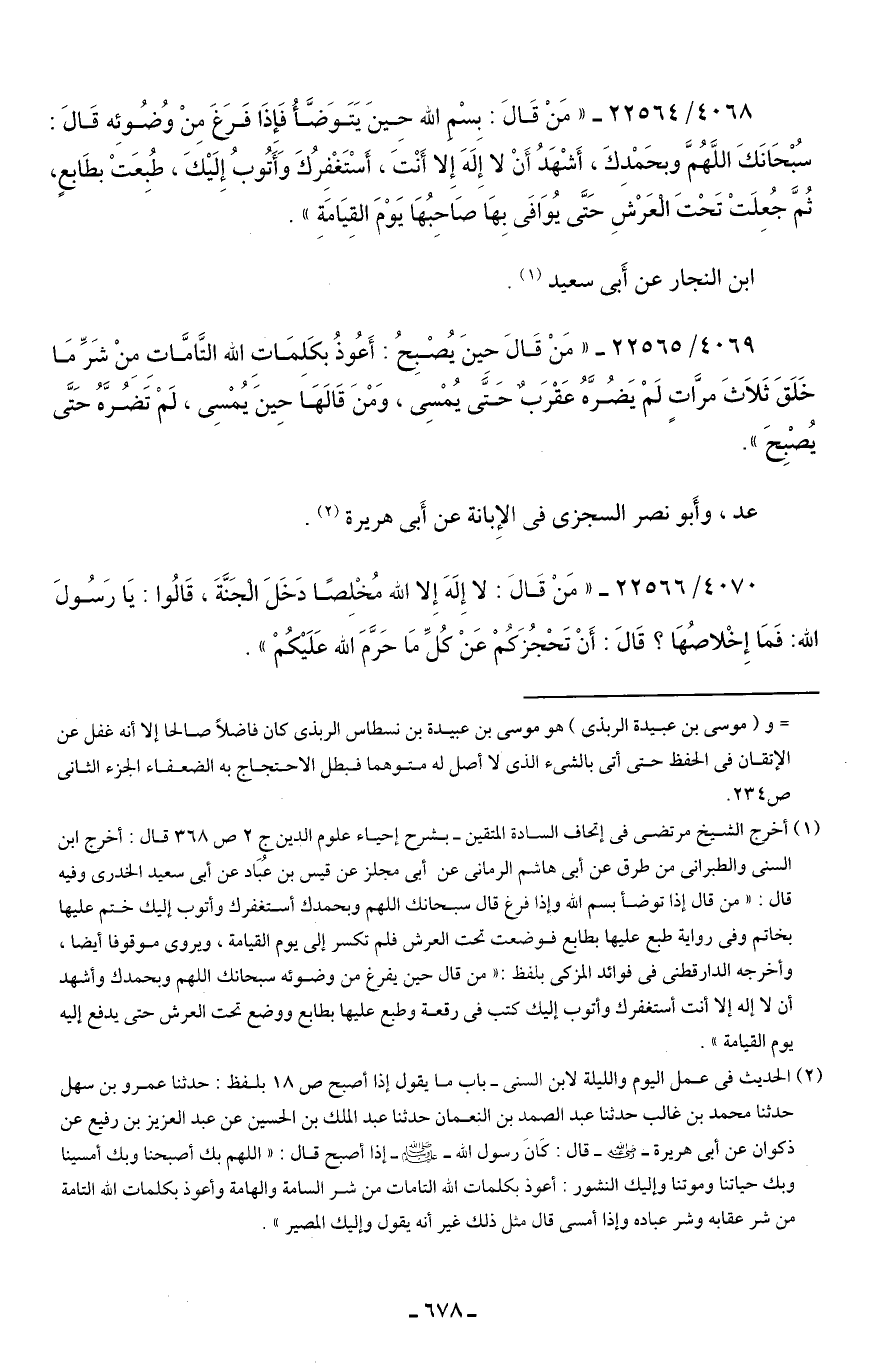 ٤٠٦٨/ ٢٢٥٦٤ ـ « مَنْ قَـالَ : بِسْمِ الله حِـينَ يَتَـوَضَّـأُ فَإِذَا فَـرَغَ مِنْ وُضُـوئِه قَـالَ :
سُبْحَانَكَ اللَّهُمَّ وبِحَمْدِكَ ، أَشْهَدُ أَنْ لا إِلَهَ إلا أَنْتَ ، أَسْتَغْفِرُكَ وَأَتُوبُ إِلَيْكَ ، طُبِعَتْ بِطَابِعٍ،
ثُمَّ جُعِلَتْ تَحْتَ الْعَرْشِ حَتَّى يُوَافَى بِهَا صَاحِبُهَا يَوْمَ القِيَامَةِ » .
ابن النجار عن أَبى سعيد (١) .
٤٠٦٩/ ٢٢٥٦٥ ـ « مَنْ قَـالَ حِينَ يُصْـبِحُ : أَعُوذُ بِكَلِمَـاتِ الله التَّامَّـاتِ مِنْ شَرِّ مَـا
خَلَقَ ثَلَاثَ مرَّاتٍ لَمْ يَضُرَّهُ عَقْرَبٌ حَـتَّى يُمْسِى ، ومَنْ قَالَهَـا حِينَ يُمْسِى ، لَمْ تَضُـرَّهُ حَتَّى
يُصْبِحَ ».
عد ، وأَبو نصر السجزى فى الإِبانة عن أَبى هريرة (٢) .
٤٠٧٠/ ٢٢٥٦٦ ـ « مَنْ قَـالَ : لا إِلَهَ إلا الله مُخْلِصًـا دَخَلَ الْجَنَّةَ ، قَالُوا : يَا رَسُـولَ
الله: فَمَا إِخْلاصُهَا ؟ قَالَ : أَنْ تَحْجُزَكُمْ عَنْ كُلِّ مَا حَرَّمَ الله عَلَيْكُمْ » .
= و ( موسى بن عبـيدة الربذى ) هو موسى بن عبيـدة بن نسطاس الربذى كان فاضلاً صـالحا إلا أنه غفل عن
الإتقـان فى الحفظ حـتى أتى بالشىء الذى لا أصل له متـوهما فـبطل الاحتجـاج به الضعفـاء الجزء الثـانى
ص٢٣٤.
(١) أخرج الشـيخ مرتضـى فى إتحاف السـادة المتقين ـ بـشرح إحياء علوم الدين ج ٢ ص ٣٦٨ قـال : أخرج ابن
السنى والطبرانى من طرق عن أبى هاشم الرمانى عن أبى مجلز عن قيس بن عُبَاد عن أبى سعيد الخدرى وفيه
قال : « من قال إذا توضـأ بسم الله وإذا فرغ قال سبـحانك اللهم وبحمدك أسـتغفرك وأتوب إليك خـتم عليها
بخاتم وفى رواية طبع عليها بطابع فـوضعت تحت العرش فلم تكسر إلى يوم القيامة ، ويروى مـوقوفا أيضا ،
وأخرجه الدارقطنى فى فوائد المزكى بلفظ :« من قال حين يفرغ من وضـوئه سبحانك اللهم وبحمدك وأشهد
أن لا إله إلا أنت أستغفرك وأتوب إليك كتب فى رقعـة وطبع عليها بطابع ووضع تحت العرش حتى يدفع إليه
يوم القيامة » .
(٢) الحديث فى عـمل اليوم والليلة لابن السنى ـ باب مـا يقول إذا أصبح ص ١٨ بلـفظ : حدثنا عمـرو بن سهل
حدثنا محمد بن غالب حدثنا عبد الصمد بن النعمان حدثنا عبد الملك بن الحسين عن عبد العزيز بن رفيع عن
ذكوان عن أبى هريرة ـ رضي الله عنه ـ قال : كَانَ رسول الله ـ صلى الله عليه وسلم ـ إذا أصبح قـال : « اللهم بك أصبحنا وبك أمسينا
وبك حياتنا وموتنا وإليك النشور : أعوذ بكلمات الله التامات من شـر السامة والهامة وأعوذ بكلمات الله التامة
من شر عقابه وشر عباده وإذا أمسى قال مثل ذلك غير أنه يقول وإليك المصير » .
ـ ٦٧٨ ـ